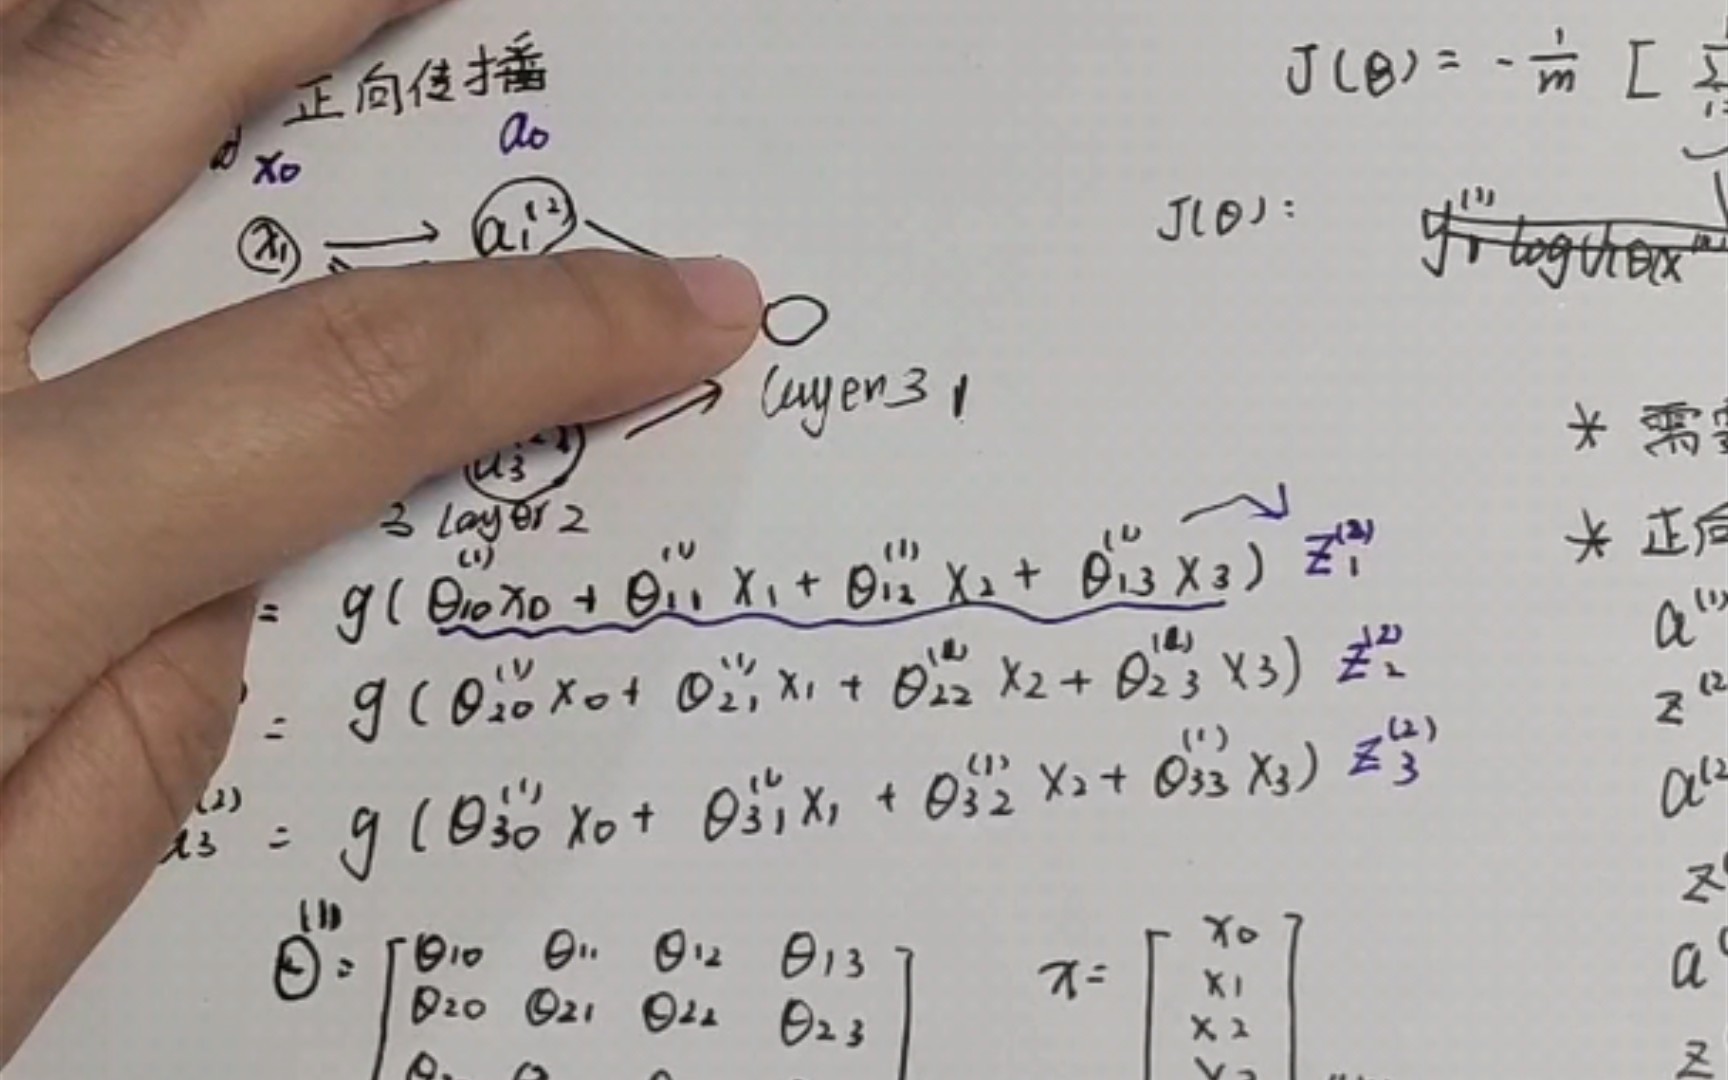 正向传播
x₀ a₀
x₁ a₁⁽²⁾
layer3
layer 2
= g(θ₁₀⁽¹⁾x₀ + θ₁₁⁽¹⁾x₁ + θ₁₂⁽¹⁾x₂ + θ₁₃⁽¹⁾x₃) z₁⁽²⁾
= g(θ₂₀⁽¹⁾x₀ + θ₂₁⁽¹⁾x₁ + θ₂₂x₂ + θ₂₃x₃) z₂⁽²⁾
a₃⁽²⁾ = g(θ₃₀⁽¹⁾x₀ + θ₃₁⁽¹⁾x₁ + θ₃₂⁽¹⁾x₂ + θ₃₃⁽¹⁾x₃) z₃⁽²⁾
θ⁽¹⁾ = [ θ₁₀ θ₁₁ θ₁₂ θ₁₃
θ₂₀ θ₂₁ θ₂₂ θ₂₃
x = [ x₀
x₁
x₂
J(θ) = -1/m [
J(θ):
* 需
* 正向
a⁽¹⁾
z⁽²
a⁽²
z
a
z